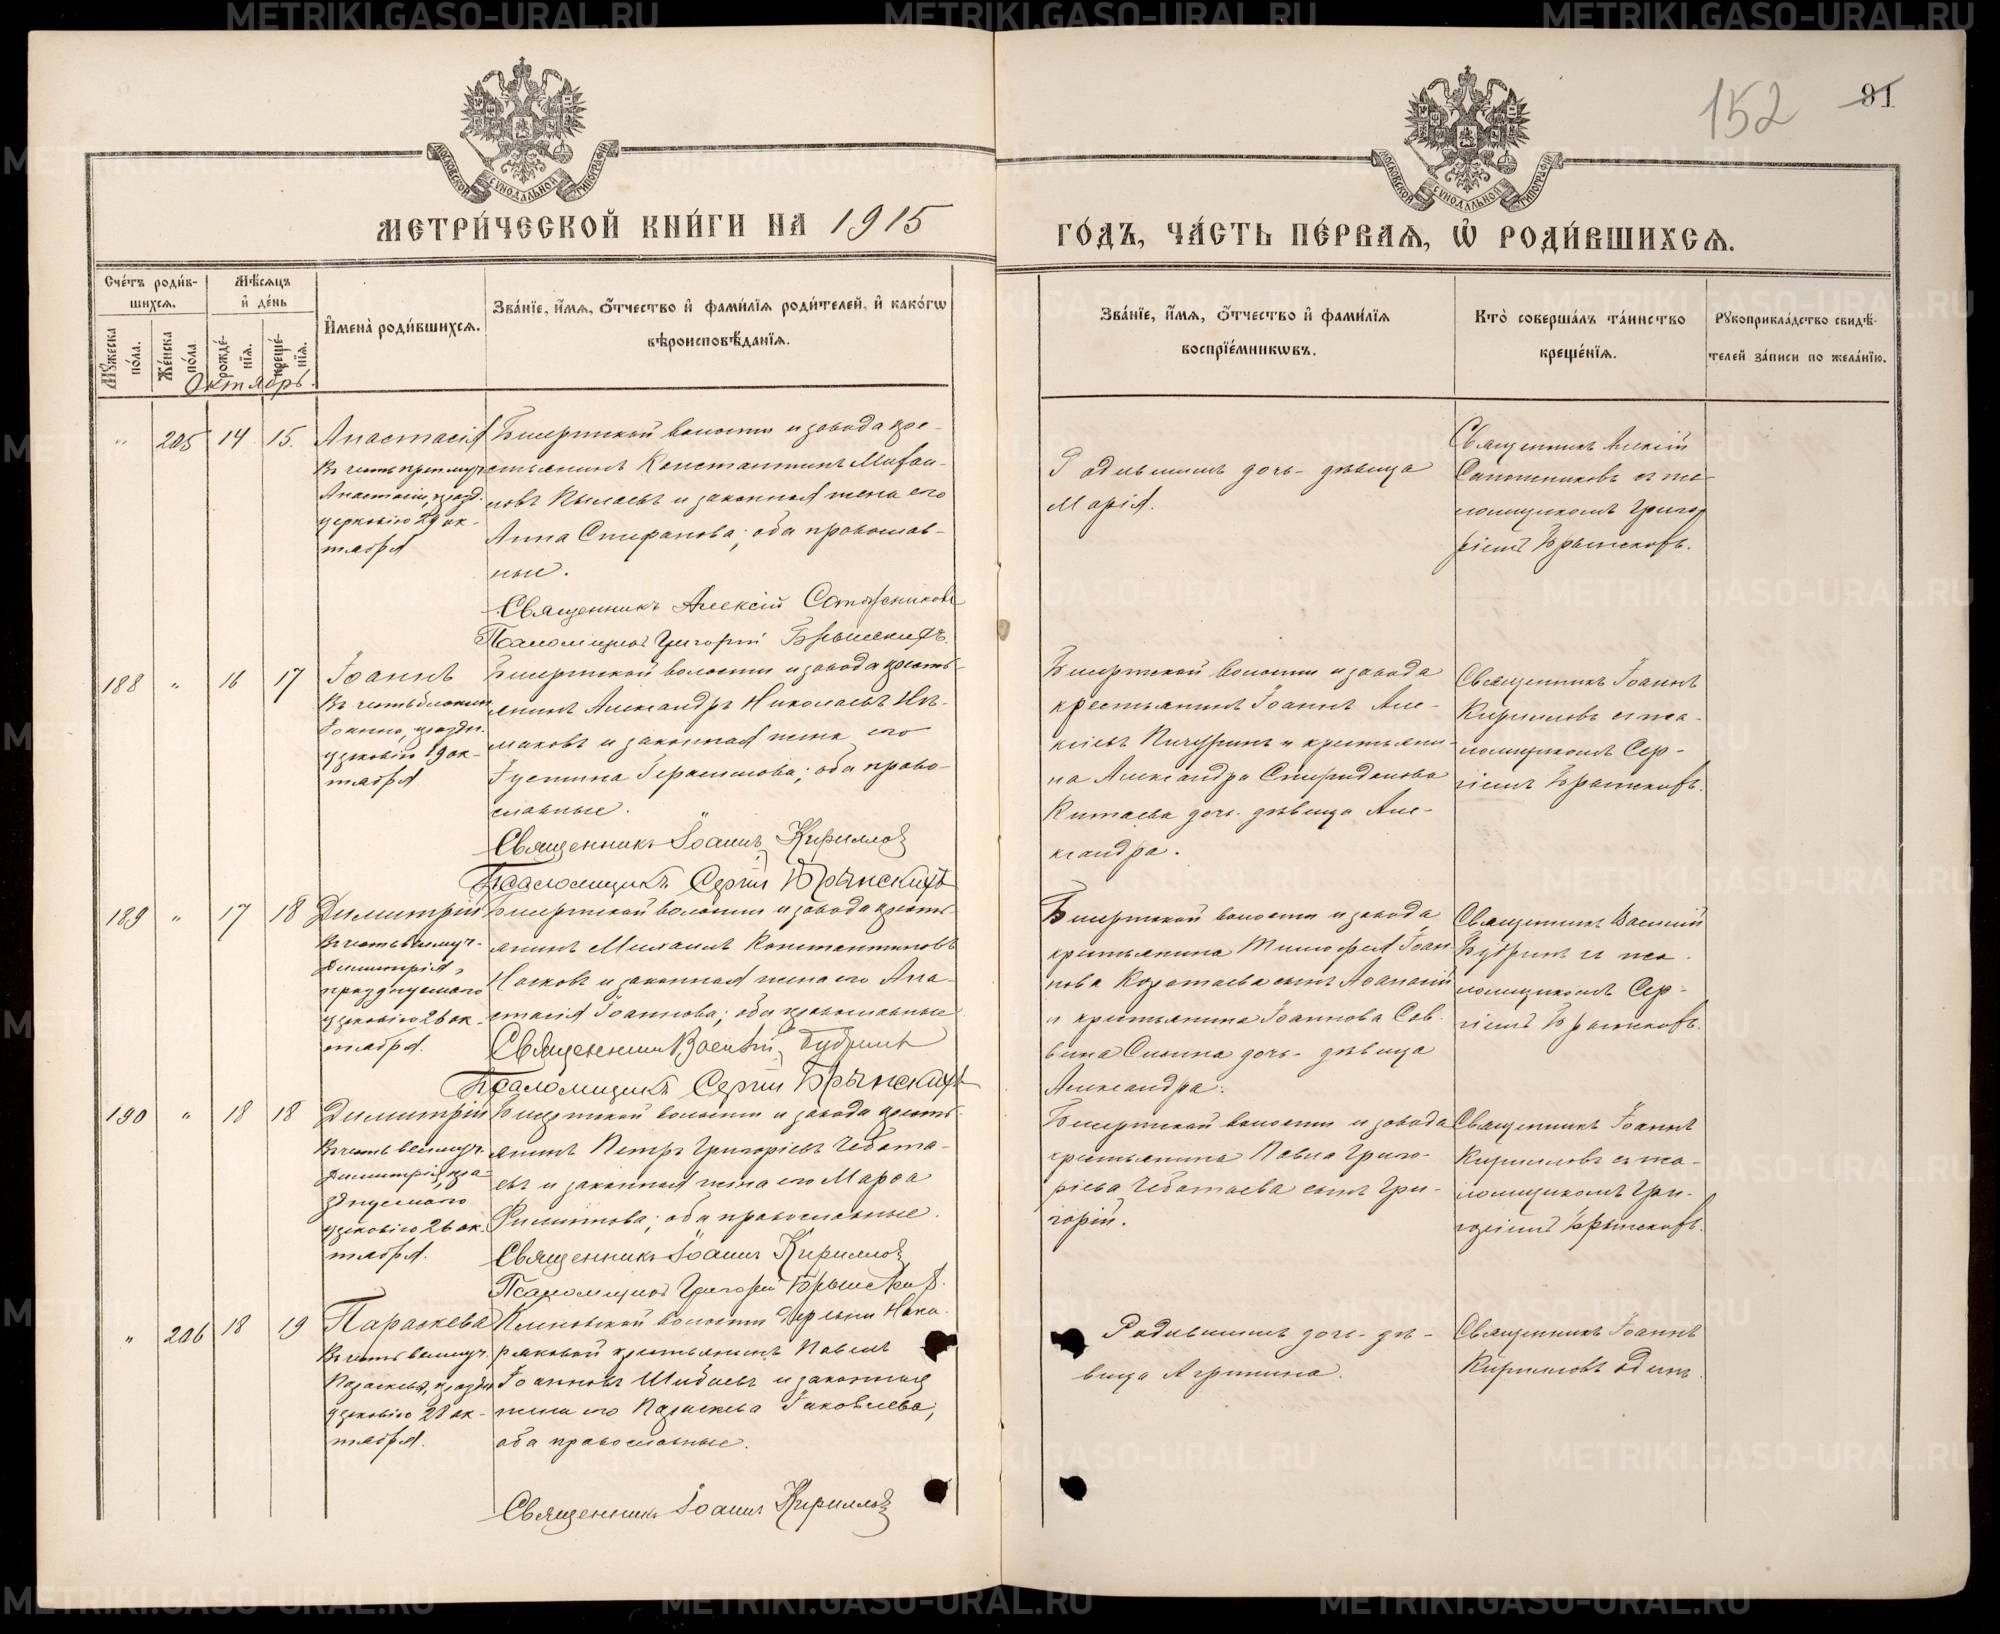 152
91
МОСКОВСКОЙ СѴНОДАЛЬНОЙ ТИПОГРАФІИ
МОСКОВСКОЙ СѴНОДАЛЬНОЙ ТИПОГРАФІИ
МЕТРИ́ЧЕСКОЙ КНИ́ГИ НА 1915
ГО́ДЪ, ЧА́СТЬ ПЕ́РВАѦ, Ѡ҆ РОДИ́ВШИХСѦ.
Сче́тъ роди́в-
шихсѧ.
Мꙋ́жеска по́ла.
Же́нска по́ла
Мѣ́сѧцъ
и҆ де́нь
рожде́-нїѧ.
креще́-нїѧ.
И҆мена̀ роди́вшихсѧ.
Зва́нїе, и҆́мѧ, ѻ҆́тчество и҆ фами́лїѧ роди́телей, и҆ како́гѡ
вѣроисповѣ́данїѧ.
Зва́нїе, и҆́мѧ, ѻ҆́тчество и҆ фами́лїѧ
воспрїе́мникѡвъ.
Кто̀ соверша́лъ та́инство
креще́нїѧ.
Рꙋкоприкла́дство свидѣ́-
телей за́писи по жела́нїю.
Октябрь.
" 205 14 15.
Анастасія
Въ честь препмуч.
Анастасіи, празд.
церковію 29 ок-
тября
Бисертской волости и завода кре-
стьянинъ Константинъ Михаи-
ловъ Пылаевъ и законная жена его
Анна Стефанова; оба православ-
ные.
Священникъ Алексій Сапожниковъ
Псаломщикъ Григорій Брынскихъ.
Родившимъ дочь- дѣвица
Марія.
Священникъ Алексій
Сапожниковъ съ пса-
ломщикомъ Григо-
ріемъ Брынскихъ.
188 " 16 17
Іоаннъ
Іоанна, праздн.
церковію 19 ок-
тября
Бисертской волости и завода кресть-
янинъ Александръ Николаевъ
и законная жена его
Іустина Герасимова; оба право-
славные.
Священникъ Іоаннъ Кирилловъ
Псаломщикъ Сергій Брынскихъ
Бисертской волости и завода
крестьянинъ Іоаннъ Але-
ксіевъ Пичугинъ и крестьяни-
на Александра Спиридонова
Китаева дочь- дѣвица Але-
ксандра.
Священникъ Іоаннъ
Кирилловъ съ пса-
ломщикомъ Сер-
гіемъ Брынскихъ.
189 " 17 18
Димитрій
Въ честь велмуч.
Димитрія,
празднуемаго
церковію 26 ок-
тября.
Бисертской волости и завода кресть-
янинъ Михаилъ Константиновъ
Носковъ и законная жена его Ана-
стасія Іоаннова; оба православные
Священникъ Василій Будринъ
Псаломщикъ Сергій Брынскихъ
Бисертской волости и завода
крестьянина Тимофея Іоан-
нова Коротаева сынъ Аѳанасій
и крестьянина Іоаннова Сав-
вина дочь- дѣвица
Александра.
Священникъ Василій
Будринъ съ пса-
ломщикомъ Сер-
гіемъ Брынскихъ.
190 " 18 18
Димитрій
Въ честь велмуч.
Димитрія, пра-
зднуемаго
церковію 26 ок-
тября.
Бисертской волости и завода кресть-
янинъ Петръ Григоріевъ Чебота-
евъ и законная жена его Марѳа
Филиппова; оба православные.
Священникъ Іоаннъ Кирилловъ
Псаломщикъ Григорій Брынскихъ.
Бисертской волости и завода
крестьянина Павла Григо-
ріева Чеботаева сынъ Гри-
горій.
Священникъ Іоаннъ
Кирилловъ съ пса-
ломщикомъ Гри-
горіемъ Брынскихъ.
" 206 18 19
Параскева
Въ честь велмуч.
Параскевы, праздн.
церковію 28 ок-
тября.
Кленовской волости деревни
крестьянинъ Павелъ
Іоанновъ Шибаевъ и законная
жена его Параскева Іаковлева;
оба православные.
Священникъ Іоаннъ Кирилловъ
Родившимъ дочь- дѣ-
вица Агриппина.
Священникъ Іоаннъ
Кирилловъ одинъ.
METRIKI.GASO-URAL.RU